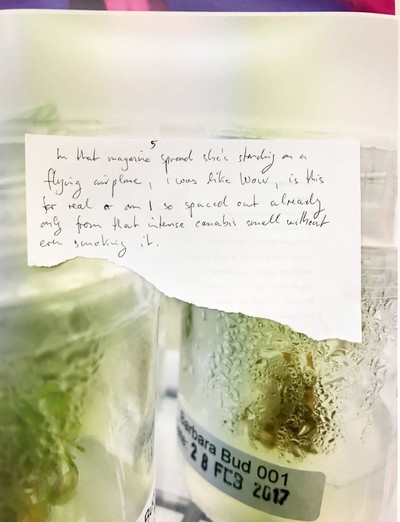 5
In that magazine spread she's standing on a
flying airplane, i was like Wow, is this
for real or am I so spaced out already
only from that intense canabis smell without
even smoking it.
Barbara Bud 001
28 FEB 2017